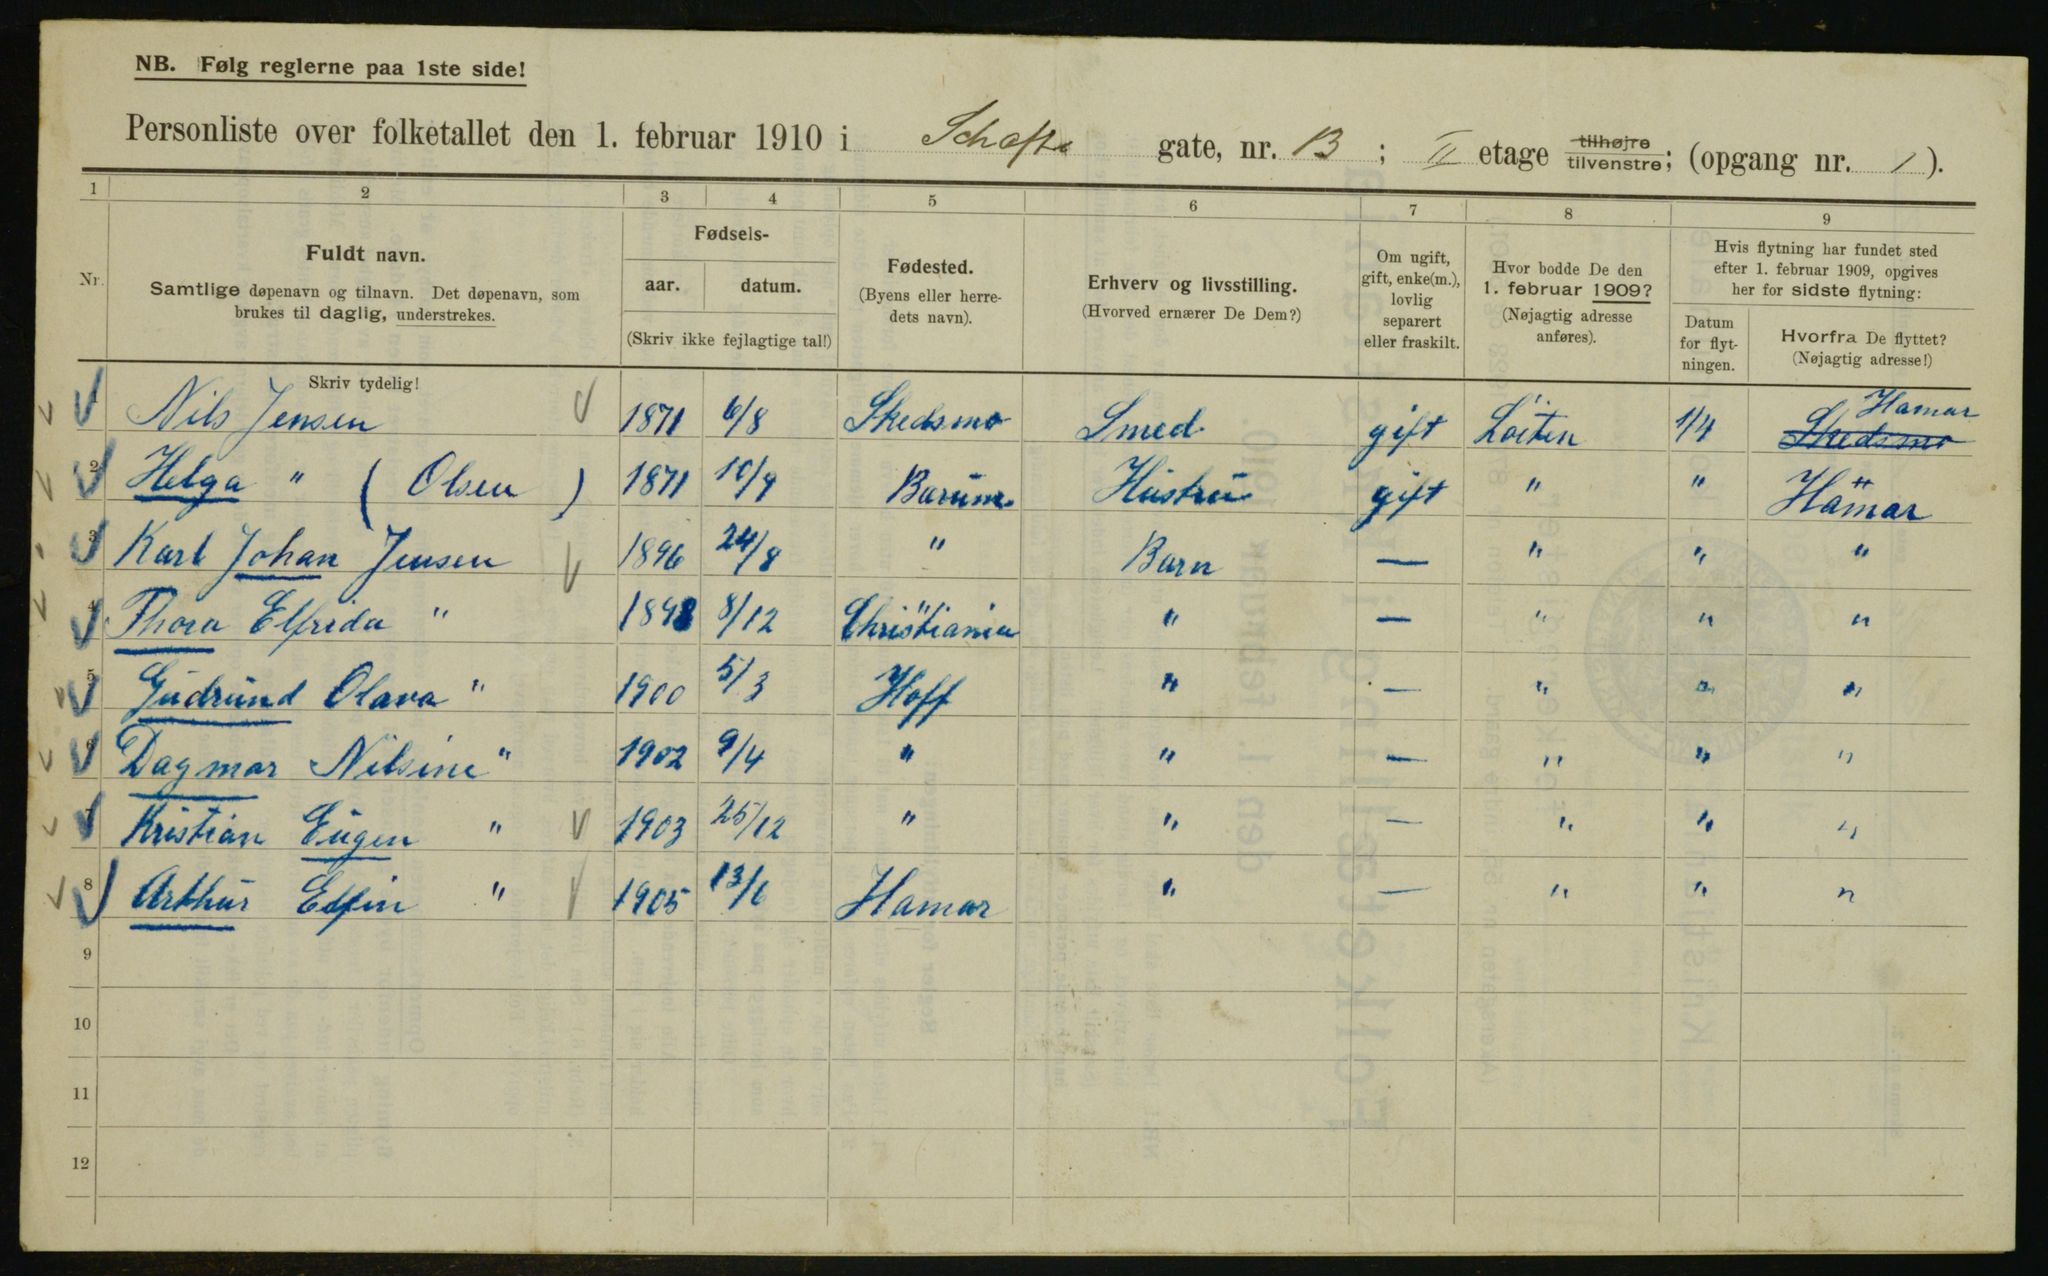 NB. Følg reglerne paa 1ste side!
Personliste over folketallet den 1. februar 1910 i gate, nr. 13; II etage tilhøjre tilvenstre; (opgang nr. 1).
1 2 3 4 5 6 7 8 9
Nr.
Fuldt navn.
Samtlige døpenavn og tilnavn. Det døpenavn, som
brukes til daglig, understrekes.
Skriv tydelig!
Fødsels-
aar. datum.
(Skriv ikke fejlagtige tal!)
Fødested.
(Byens eller herre-
dets navn).
Erhverv og livsstilling.
(Hvorved ernærer De Dem?)
Om ugift,
gift, enke(m.),
lovlig
separert
eller fraskilt.
Hvor bodde De den
1. februar 1909?
(Nøjagtig adresse
anføres).
Hvis flytning har fundet sted
efter 1. februar 1909, opgives
her for sidste flytning:
Datum
for flyt-
ningen.
Hvorfra De flyttet?
(Nøjagtig adresse!)
1 Nils Jensen 1871 6/8 Skedsmo Smed gift Löiten 1/4 Skedsmo Hamar
2 Helga " (Olsen) 1871 10/9 Barum Hustru gift " " Hamar
3 Karl Johan Jensen 1896 24/8 " Barn — " " "
4 Thora Elfrida " 1898 8/12 Christiania " — " " "
5 Gudrund Olava " 1900 5/3 Hoff " — " " "
6 Dagmar Nilsine " 1902 9/4 " " — " " "
7 Kristian Eugen " 1903 25/12 " " — " " "
8 Arthur Elfin " 1905 13/6 Hamar " — " " "
9
10
11
12